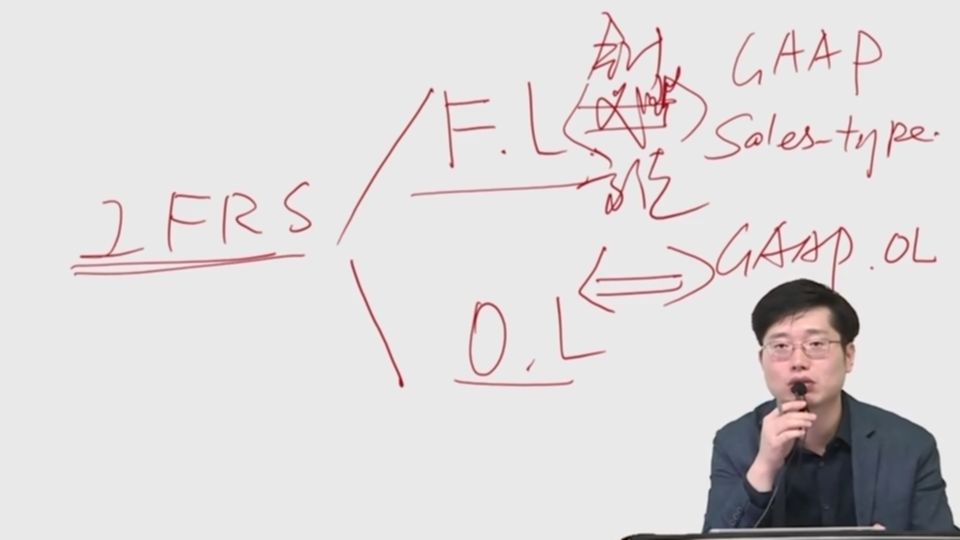 IFRS
F.L
GAAP
Sales-type.
O.L
GAAP. OL